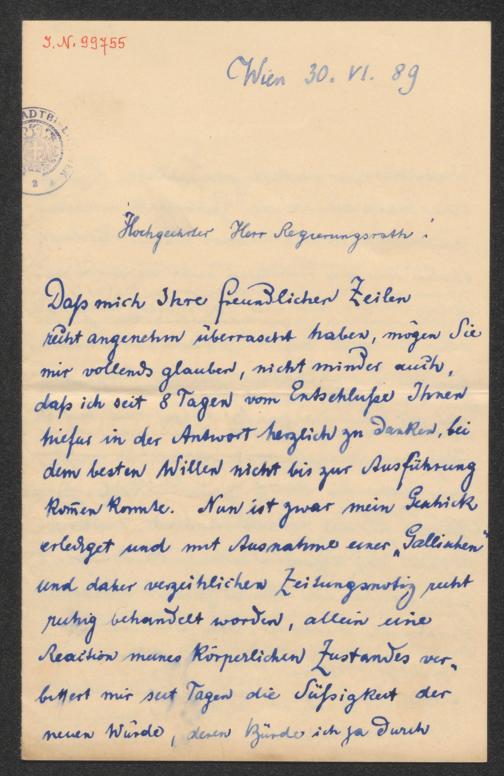 J.N. 99755
Wien 30. VI. 89
Hochgeehrter Herr Regierungsrath!
Daß mich Ihre freundlichen Zeilen
recht angenehm überrascht haben, mögen Sie
mir vollends glauben, nicht minder auch,
daß ich seit 8 Tagen vom Entschluße Ihnen
hiefür in der Antwort herzlich zu danken, bei
dem besten Willen nicht bis zur Ausführung
kom̅en konnte. Nun ist zwar mein Geschick
erlediget und mit Ausnahme einer „Gallischen"
und daher verzeihlichen Zeitungsnotiz recht
ruhig behandelt worden, allein eine
Reaction meines körperlichen Zustandes ver„
bittert mir seit Tagen die Süßigkeit der
neuen Würde, deren Bürde ich ja durch